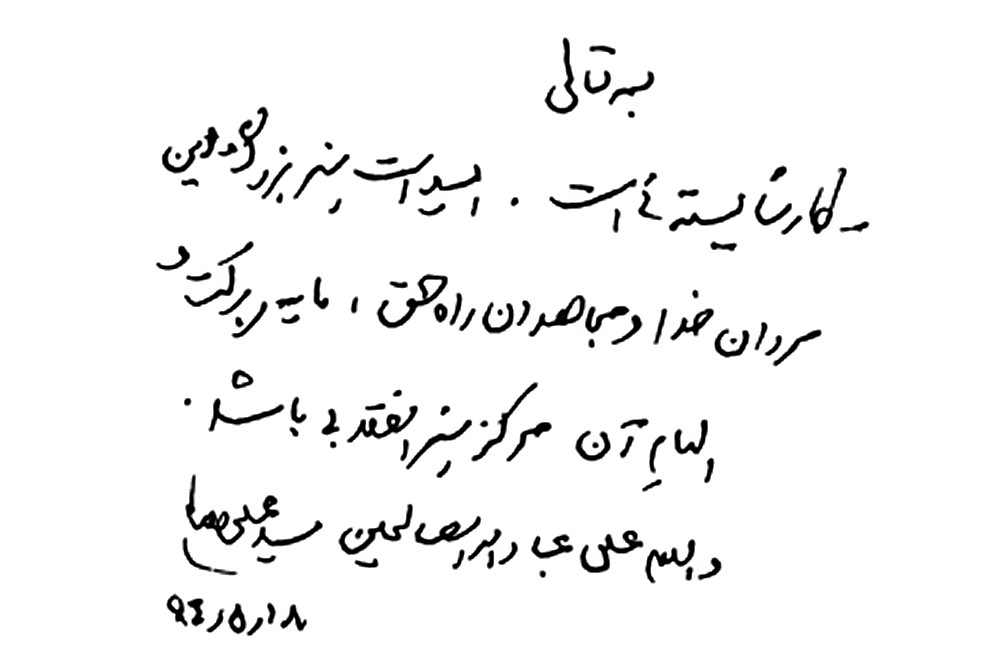 بسمه تعالی
- کار شایسته‌ئی است. امید است هنر بزرگ و این
مردان خدا و مجاهدان راه حق، مایه‌ی برکت و
الهامِ آن مرکز هنر انقلابی باشد.
والسلام علی عباد الله الصالحین سید علی
۹٤/۵/۱۸